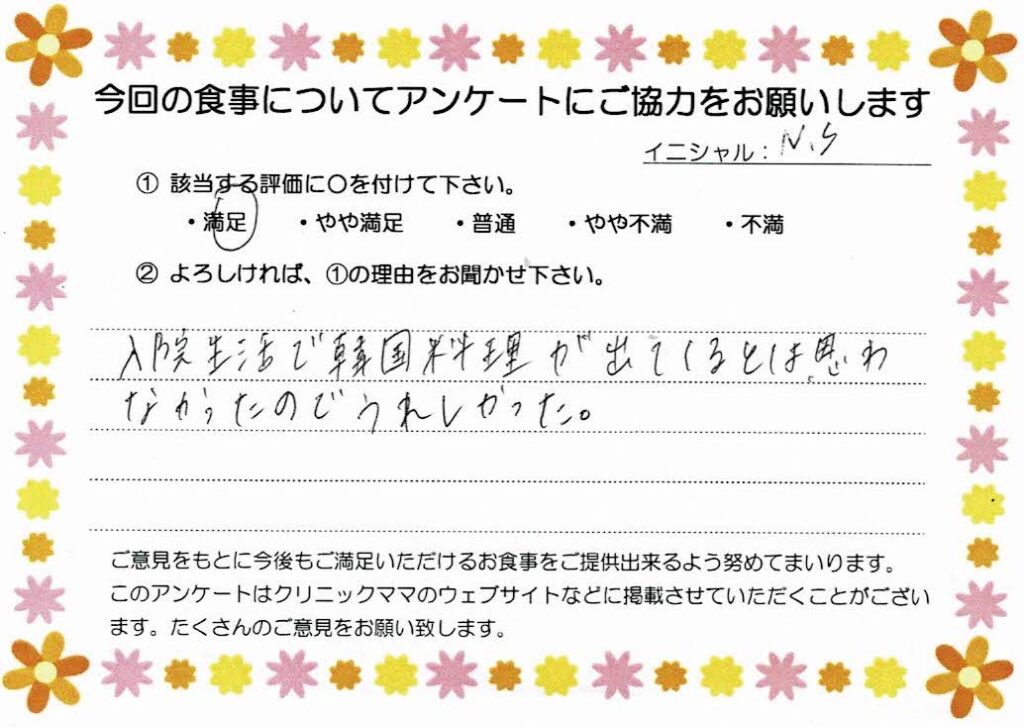 今回の食事についてアンケートにご協力をお願いします
イニシャル： N.S
① 該当する評価に〇を付けて下さい。
・満足 ・やや満足 ・普通 ・やや不満 ・不満
② よろしければ、①の理由をお聞かせ下さい。
入院生活で韓国料理が出てくるとは思わ
なかったのでうれしかった。
ご意見をもとに今後もご満足いただけるお食事をご提供出来るよう努めてまいります。
このアンケートはクリニックママのウェブサイトなどに掲載させていただくことがござい
ます。たくさんのご意見をお願い致します。